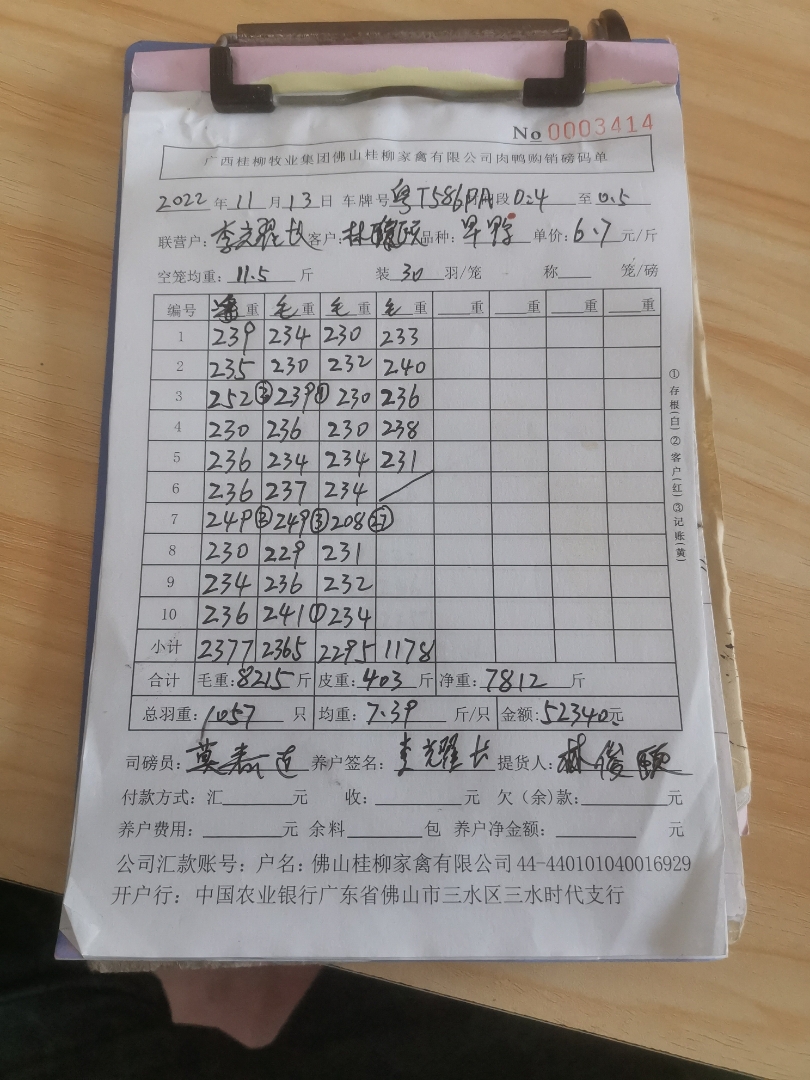 No 0003414
广西桂柳牧业集团佛山桂柳家禽有限公司肉鸭购销磅码单
2022年11月13日 车牌号粤T586 段0:4至0.5
联营户:李 客户:林 品种: 单价:6.7元/斤
空笼均重:11.5斤 装30羽/笼 称 笼/磅
编号 重 毛重 毛重 毛重 重 重 重 重
1 239 234 230 233
2 235 230 232 240
3 252② 239① 230 236
4 230 236 230 238
5 236 234 234 231
6 236 237 234
7 249② 249③ 208㉗
8 230 229 231
9 234 236 232
10 236 241① 234
小计 2377 2365 2295 1178
合计 毛重:8215斤 皮重:403斤 净重:7812斤
总羽重:1057只 均重:7.39斤/只 金额:52340元
司磅员:莫 养户签名:李 耀长 提货人:林俊
付款方式:汇 元 收: 元 欠(余)款: 元
养户费用: 元 余料 包 养户净金额: 元
公司汇款账号:户名:佛山桂柳家禽有限公司44-440101040016929
开户行:中国农业银行广东省佛山市三水区三水时代支行
①存根(白)②客户(红)③记账(黄)